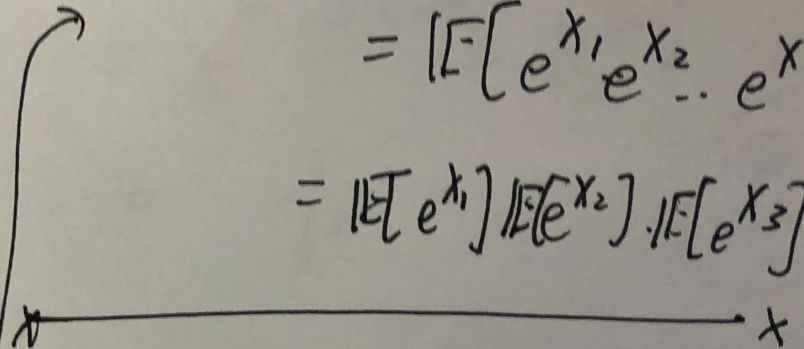 = 𝔼[e^{X_1} e^{X_2} .. e^X
= 𝔼[e^{X_1}] 𝔼[e^{X_2}] . 𝔼[e^{X_3}]
x x